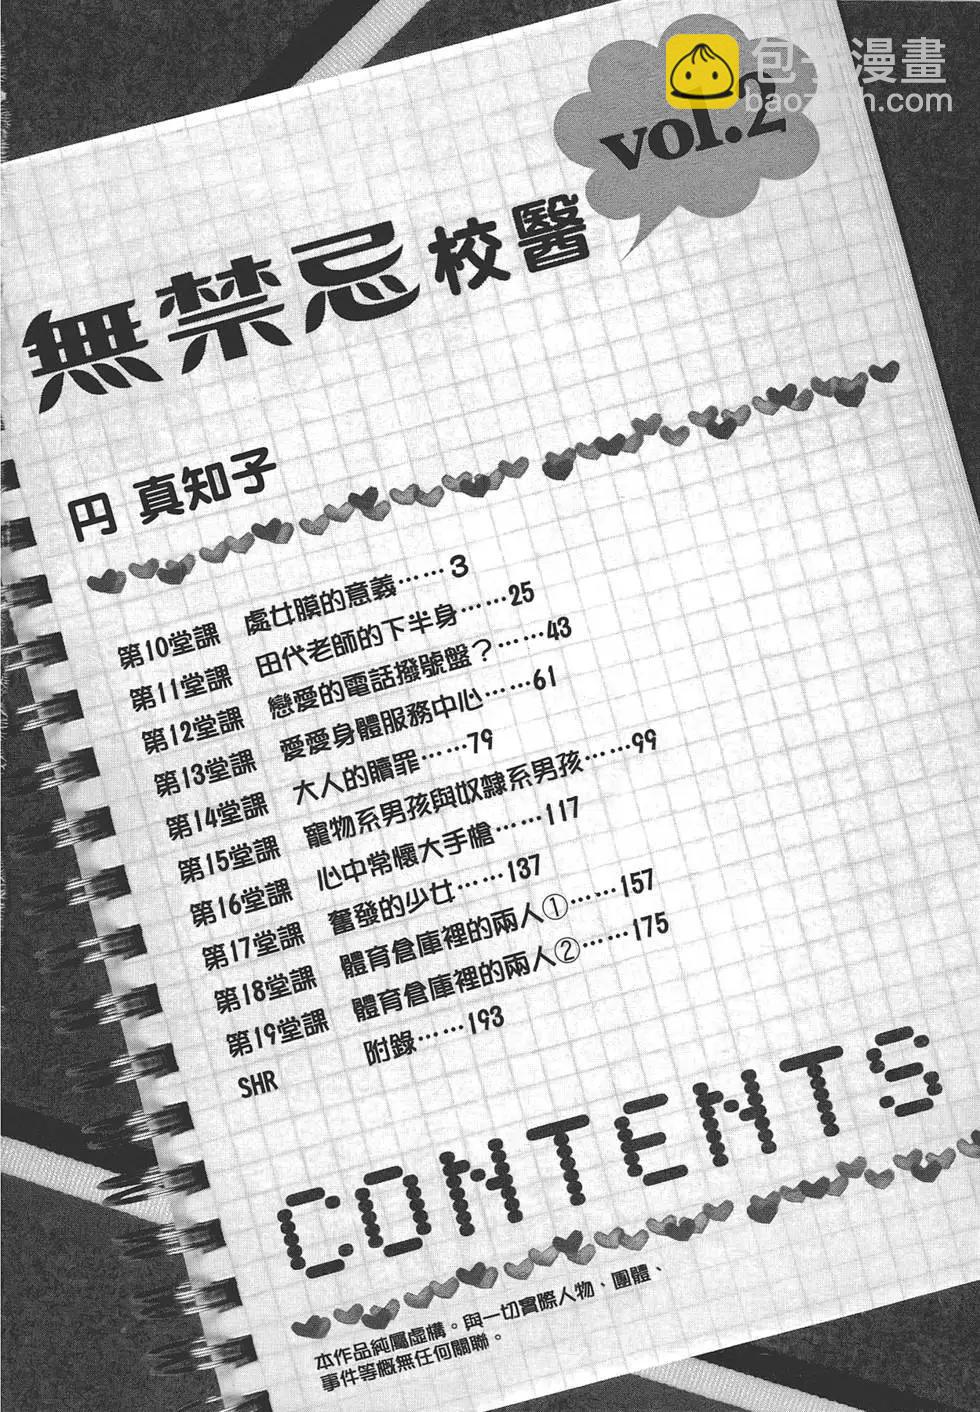 包子漫畫
baozimh.com
vol.2
無禁忌校醫
円 真知子
第10堂課 處女膜的意義……3
第11堂課 田代老師的下半身……25
第12堂課 戀愛的電話撥號盤？……43
第13堂課 愛愛身體服務中心……61
第14堂課 大人的贖罪……79
第15堂課 寵物系男孩與奴隸系男孩……99
第16堂課 心中常懷大手槍……117
第17堂課 奮發的少女……137
第18堂課 體育倉庫裡的兩人①……157
第19堂課 體育倉庫裡的兩人②……175
SHR 附錄……193
CONTENTS
本作品純屬虛構。與一切實際人物、團體、
事件等概無任何關聯。